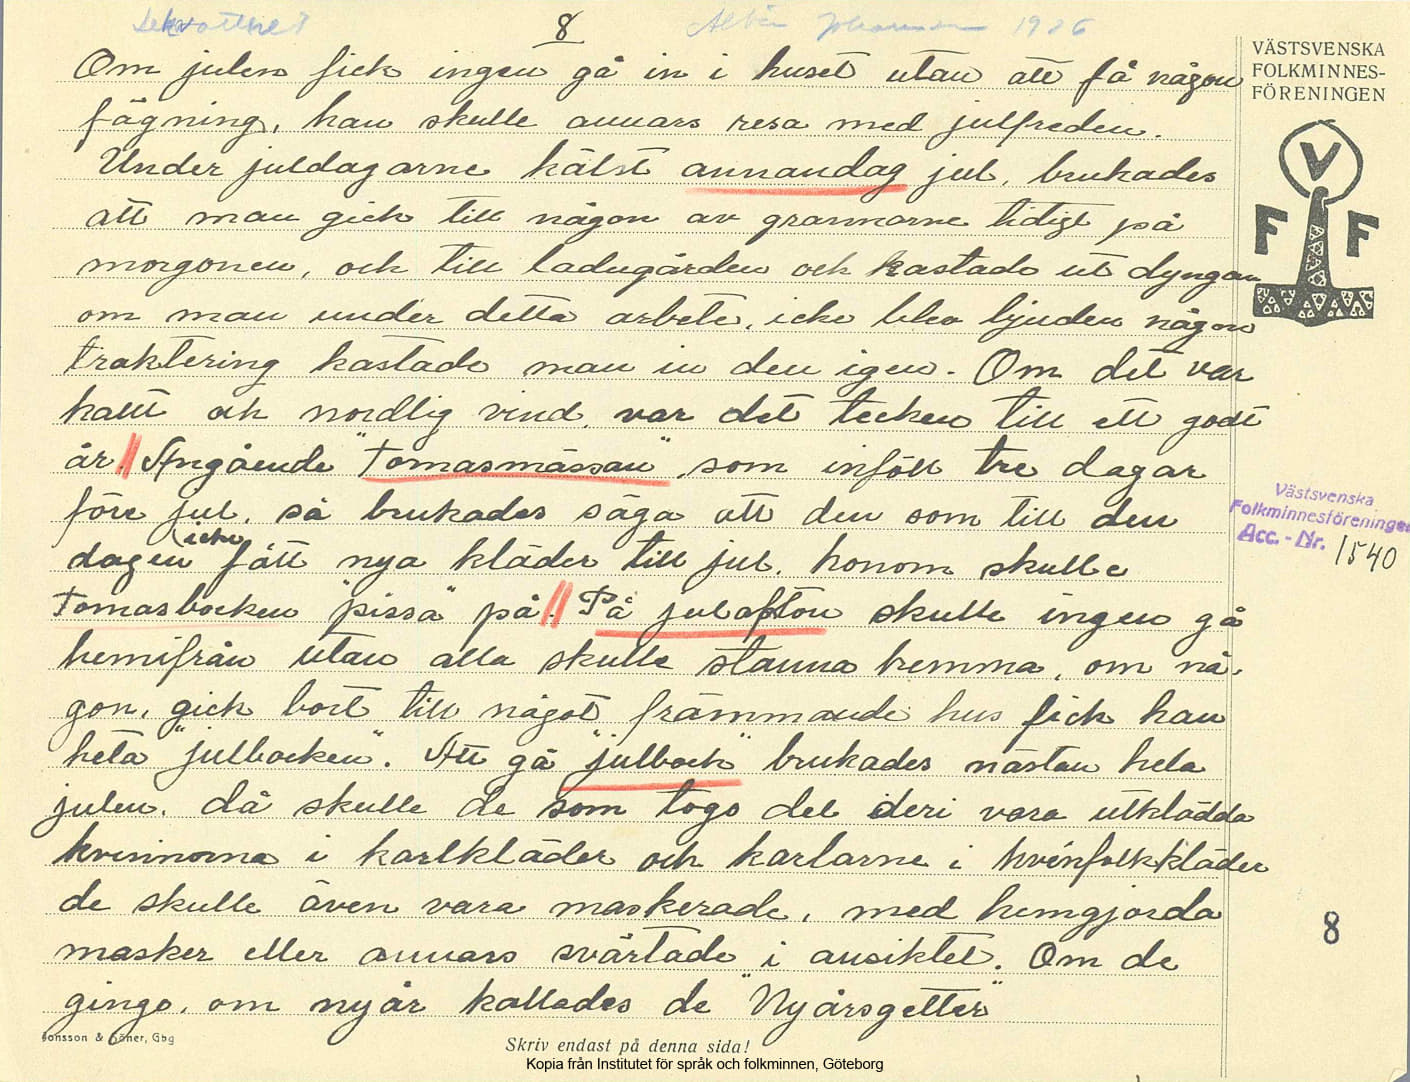 8
Albin Johansson 1926
Om julen fick ingen gå in i huset utan att få någon
fägning, han skulle annars resa med julfreden.
Under juldagarne hälst annandag jul, brukades
att man gick till någon av grannarne tidigt på
morgonen, och till ladugården och kastade ut dyngan
om man under detta arbete, icke blev bjuden någon
traktering kastade man in den igen. Om det var
kallt och nordlig vind, var det tecken till ett godt
år. Angående "Tomasmässan", som inföll tre dagar
före jul, så brukades säga att den som till den
dagen icke fått nya kläder till jul, honom skulle
Tomasbocken "pissa" på. På julafton skulle ingen gå
hemifrån utan alla skulle stanna hemma, om nå-
gon, gick bort till något främmande hus fick han
heta "julbocken". Att gå "julbock" brukades nästan hela
julen, då skulle de som togo del deri vara utklädda
kvinnorna i karlkläder och karlarne i kvinfolkkläder
de skulle även vara maskerade, med hemgjorda
masker eller annars svärtade i ansiktet. Om de
gingo, om nyår kallades de "Nyårsgetter"
VÄSTSVENSKA
FOLKMINNES-
FÖRENINGEN
V
F F
Västsvenska
Folkminnesföreningen
Acc.-Nr. 1540
8
Jonsson & Söner, Gbg
Skriv endast på denna sida!
Kopia från Institutet för språk och folkminnen, Göteborg